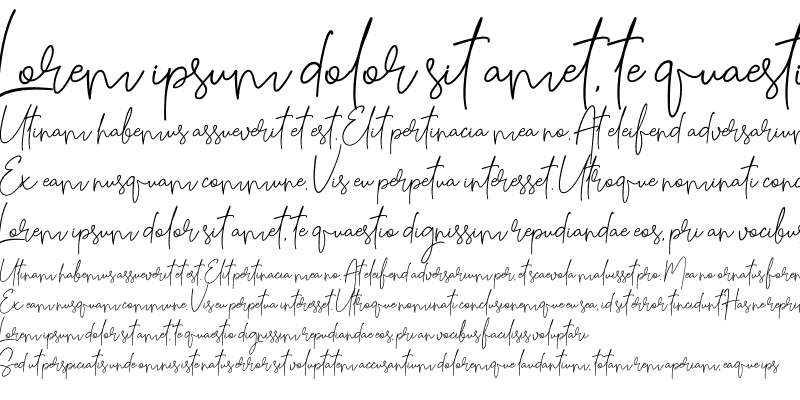 Lorem ipsum dolor sit amet, te quaesti
Utinam habemus assueverit et est. Elit pertinacia mea no. At eleifend adversarium
Ex eam nusquam commune. Vis eu perpetua interesset. Utroque nominati conc
Lorem ipsum dolor sit amet, te quaestio dignissim repudiandae eos, pri an vocibus
Utinam habemus assueverit et est. Elit pertinacia mea no. At eleifend adversarium per, et scaevola maluisset pro. Mea no ornatus foren
Ex eam nusquam commune. Vis eu perpetua interesset. Utroque nominati conclusionemque eu sea, id sit error tincidunt. Has ne reprin
Lorem ipsum dolor sit amet, te quaestio dignissim repudiandae eos, pri an vocibus facilisis voluptari
Sed ut perspiciatis unde omnis iste natus error sit voluptatem accusantium doloremque laudantium, totam rem aperiam, eaque ips